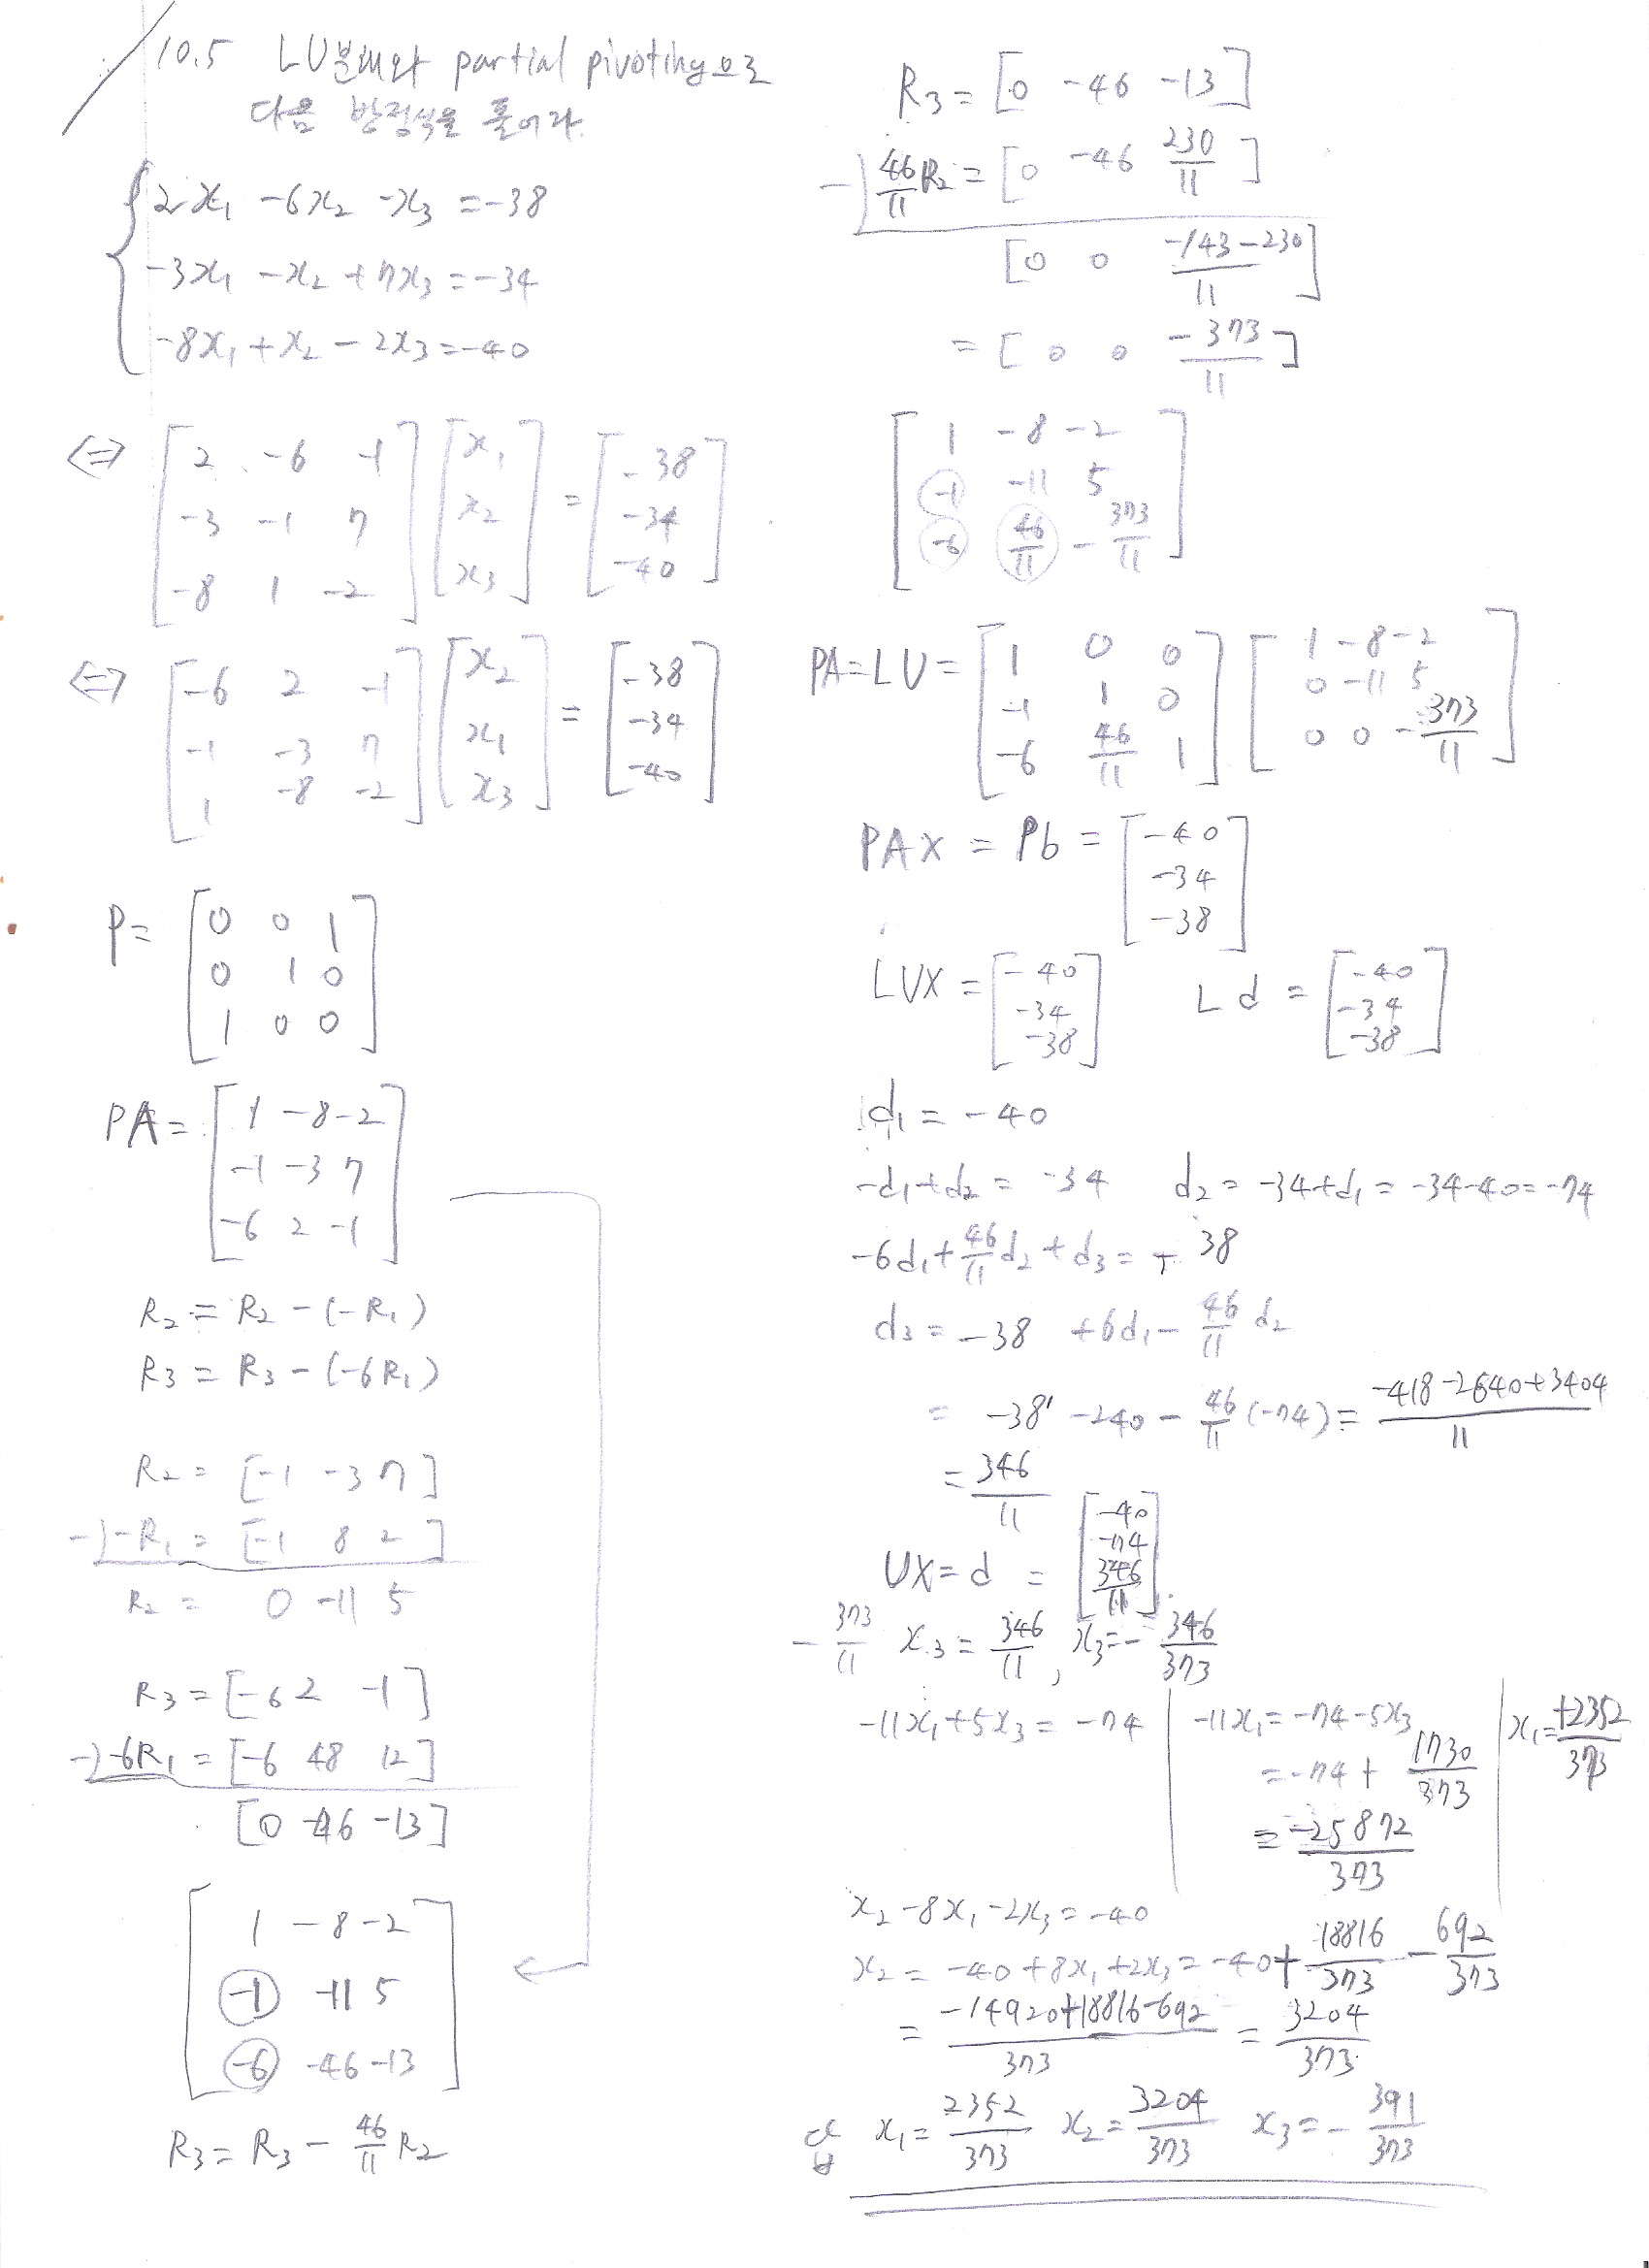 10.5 LU분해와 partial pivoting으로
다음 방정식을 풀어라.
2x₁ -6x₂ -x₃ = -38
-3x₁ -x₂ +7x₃ = -34
-8x₁ +x₂ -2x₃ = -40
⇔ [2 -6 -1; -3 -1 7; -8 1 -2] [x₁; x₂; x₃] = [-38; -34; -40]
⇔ [-6 2 -1; -1 -3 7; 1 -8 -2] [x₂; x₁; x₃] = [-38; -34; -40]
P = [0 0 1; 0 1 0; 1 0 0]
PA = [1 -8 -2; -1 -3 7; -6 2 -1]
R₂ = R₂ - (-R₁)
R₃ = R₃ - (-6R₁)
R₂ = [-1 -3 7]
-) -R₁ = [-1 8 2]
R₂ = 0 -11 5
R₃ = [-6 2 -1]
-) -6R₁ = [-6 48 12]
[0 -46 -13]
[1 -8 -2; -1 -11 5; -6 -46 -13]
R₃ = R₃ - 46/11 R₂
R₃ = [0 -46 -13]
-) 46/11 R₂ = [0 -46 230/11]
[0 0 (-143-230)/11]
= [0 0 -373/11]
[1 -8 -2; -1 -11 5; -6 46/11 -373/11]
PA = LU = [1 0 0; -1 1 0; -6 46/11 1] [1 -8 -2; 0 -11 5; 0 0 -373/11]
PAX = Pb = [-40; -34; -38]
LUX = [-40; -34; -38] Ld = [-40; -34; -38]
d₁ = -40
-d₁+d₂ = -34 d₂ = -34+d₁ = -34-40 = -74
-6d₁ + 46/11 d₂ + d₃ = -38
d₃ = -38 +6d₁ - 46/11 d₂
= -38 -240 - 46/11 (-74) = (-418-2640+3404)/11
= 346/11
UX = d = [-40; -74; 346/11]
-373/11 x₃ = 346/11, x₃ = -346/373
-11x₁+5x₃ = -74 | -11x₁ = -74-5x₃ | x₁ = +2352/373
= -74 + 1730/373
= -25872/373
x₂ -8x₁ -2x₃ = -40
x₂ = -40 +8x₁ +2x₃ = -40 + 18816/373 - 692/373
= (-14920+18816-692)/373 = 3204/373
x₁ = 2352/373 x₂ = 3204/373 x₃ = -391/373